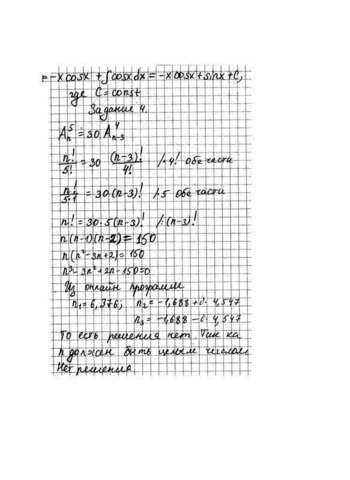 = -xcosx + ∫cosxdx = -xcosx + sinx + C,
где C = const
Задание 4.
A_n^5 = 30 A_{n-3}^4
n!/5! = 30 (n-3)!/4! /·4! Обе части
n!/5·1 = 30·(n-3)! /·5 Обе части
n! = 30·5(n-3)! /:(n-3)!
n(n-1)(n-2) = 150
n(n²-3n+2) = 150
n³-3n²+2n-150=0
Из онлайн программ
n₁=6,376; n₂=-1,688+i·4,547
n₃=-1,688-i·4,547
То есть решения нет. Так ка
n должен быть целым числом.
Нет решения